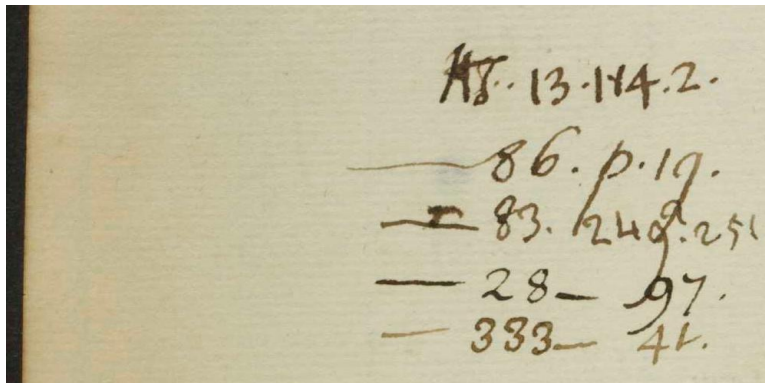 MS. 13.144.2.
— 86. p. 19.
— 83. 249. 251
— 28 — 97.
— 333 — 41.